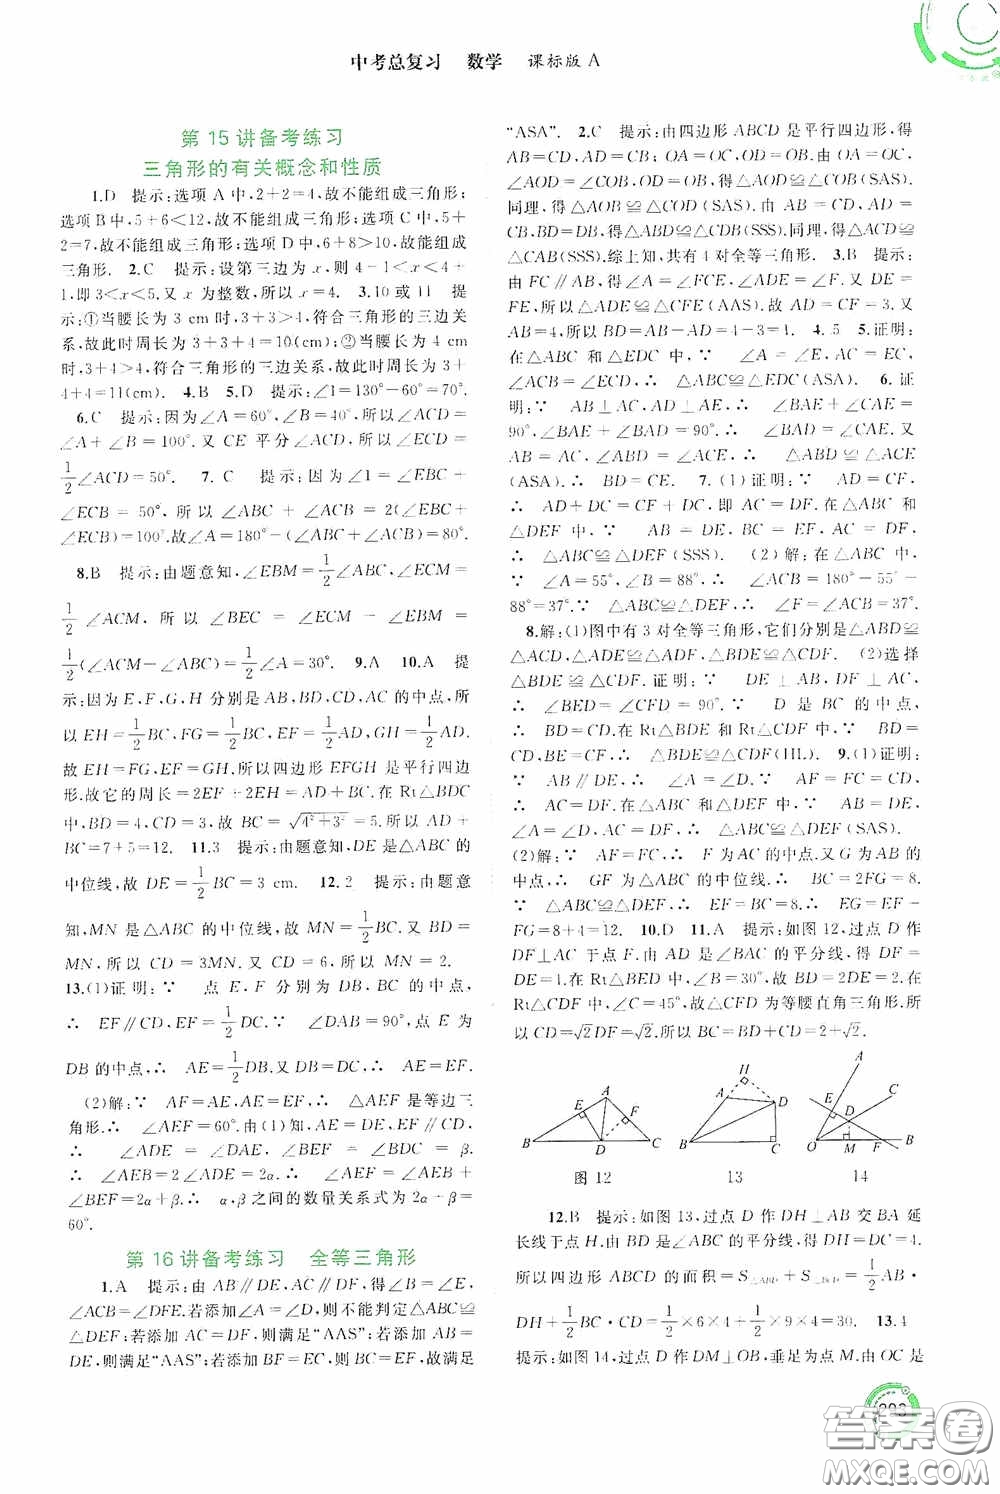 中考总复习 数学 课标版 A
第 15 讲备考练习
三角形的有关概念和性质
1.D 提示:选项 A 中,2+2=4,故不能组成三角形;
选项 B 中,5+6<12,故不能组成三角形;选项 C 中,5+
2=7,故不能组成三角形;选项 D 中,6+8>10,故能组成
三角形. 2.C 提示:设第三边为 x,则 4-1<x<4+
1,即 3<x<5.又 x 为整数,所以 x=4. 3.10 或 11 提
示:①当腰长为 3 cm 时,3+3>4,符合三角形的三边关
系,故此时周长为 3+3+4=10(cm);②当腰长为 4 cm
时,3+4>4,符合三角形的三边关系,故此时周长为 3+
4+4=11(cm). 4.B 5.D 提示:∠1=130°-60°=70°.
6.C 提示:因为∠A=60°,∠B=40°,所以∠ACD=
∠A+∠B=100°.又 CE 平分∠ACD,所以∠ECD=
1/2∠ACD=50°. 7.C 提示:因为∠1=∠EBC+
∠ECB=50°,所以∠ABC+∠ACB=2(∠EBC+
∠ECB)=100°.故∠A=180°-(∠ABC+∠ACB)=80°.
8.B 提示:由题意知,∠EBM=1/2∠ABC,∠ECM=
1/2∠ACM,所以∠BEC=∠ECM-∠EBM=
1/2(∠ACM-∠ABC)=1/2∠A=30°. 9.A 10.A 提
示:因为 E,F,G,H 分别是 AB,BD,CD,AC 的中点,所
以 EH=1/2BC,FG=1/2BC,EF=1/2AD,GH=1/2AD.
故 EH=FG,EF=GH,所以四边形 EFGH 是平行四边
形.故它的周长=2EF+2EH=AD+BC.在 Rt△BDC
中,BD=4,CD=3,故 BC=√4²+3²=5.所以 AD+
BC=7+5=12. 11.3 提示:由题意知,DE 是△ABC 的
中位线,故 DE=1/2BC=3 cm. 12.2 提示:由题意
知,MN 是△ABC 的中位线,故 MN=1/2BC.又 BD=
MN,所以 CD=3MN.又 CD=6,所以 MN=2.
13.(1)证明:∵ 点 E,F 分别为 DB,BC 的中点,
∴ EF∥CD,EF=1/2DC.∵ ∠DAB=90°,点 E 为
DB 的中点,∴ AE=1/2DB.又 DB=DC,∴ AE=EF.
(2)解:∵ AF=AE,AE=EF,∴ △AEF 是等边三
角形.∴ ∠AEF=60°.由(1)知,AE=DE,EF∥CD,
∴ ∠ADE=∠DAE=α,∠BEF=∠BDC=β.
∴ ∠AEB=2∠ADE=2α.∴ ∠AEF=∠AEB+
∠BEF=2α+β.∴ α,β之间的数量关系式为 2α+β=
60°.
第 16 讲备考练习 全等三角形
1.A 提示:由 AB∥DE,AC∥DF,得∠B=∠E,
∠ACB=∠DFE.若添加∠A=∠D,则不能判定△ABC≌
△DEF;若添加 AC=DF,则满足“AAS”;若添加 AB=
DE,则满足“AAS”;若添加 BF=EC,则 BC=EF,故满足
“ASA”. 2.C 提示:由四边形 ABCD 是平行四边形,得
AB=CD,AD=BC,OA=OC,OD=OB.由 OA=OC,
∠AOD=∠COB,OD=OB,得△AOD≌△COB(SAS).
同理,得△AOB≌△COD(SAS).由 AD=CB,AB=
CD,BD=DB,得△ABD≌△CDB(SSS).同理,得△ACD≌
△CAB(SSS).综上知,共有 4 对全等三角形. 3.B 提示:
由 FC∥AB,得∠A=∠FCE,∠ADE=∠F.又 DE=
FE,所以△ADE≌△CFE(AAS).故 AD=CF=3.又
AB=4,所以 BD=AB-AD=4-3=1. 4.5 5.证明:
在△ABC 和△EDC 中,∵ ∠A=∠E,AC=EC,
∠ACB=∠ECD,∴ △ABC≌△EDC(ASA). 6.证
明:∵ AB⊥AC,AD⊥AE,∴ ∠BAE+∠CAE=
90°,∠BAE+∠BAD=90°.∴ ∠BAD=∠CAE.又
AB=AC,∠ABD=∠ACE,∴ △ABD≌△ACE
(ASA).∴ BD=CE. 7.(1)证明:∵ AD=CF,
∴ AD+DC=CF+DC,即 AC=DF.在△ABC 和
△DEF 中,∵ AB=DE,BC=EF,AC=DF,
∴ △ABC≌△DEF(SSS). (2)解:在△ABC 中,
∵ ∠A=55°,∠B=88°,∴ ∠ACB=180°-55°-
88°=37°.∵ △ABC≌△DEF,∴ ∠F=∠ACB=37°.
8.解:(1)图中有 3 对全等三角形,它们分别是△ABD≌
△ACD,△ADE≌△ADF,△BDE≌△CDF. (2)选择
△BDE≌△CDF.证明:∵ DE⊥AB,DF⊥AC,
∴ ∠BED=∠CFD=90°.∵ D 是 BC 的中点,
∴ BD=CD.在 Rt△BDE 和 Rt△CDF 中,∵ BD=
CD,BE=CF,∴ △BDE≌△CDF(HL). 9.(1)证明:
∵ AB∥DE,∴ ∠A=∠D.∵ AF=FC=CD,
∴ AC=DF.在△ABC 和△DEF 中,∵ AB=DE,
∠A=∠D,AC=DF,∴ △ABC≌△DEF(SAS).
(2)解:∵ AF=FC,∴ F 为 AC 的中点.又 G 为 AB 的
中点,∴ GF 为△ABC 的中位线.∴ BC=2FG=8.
∵ △ABC≌△DEF,∴ EF=BC=8.∴ EG=EF-
FG=8+4=12. 10.D 11.A 提示:如图 12,过点 D 作
DF⊥AC 于点 F.由 AD 是∠BAC 的平分线,得 DF=
DE=1.在 Rt△BED 中,∠B=30°,故 BD=2DE=2.在
Rt△CDF 中,∠C=45°,故△CFD 为等腰直角三角形.所
以 CD=√2DF=√2.所以 BC=BD+CD=2+√2.
A E F B D C
H A D B C
A E D C O M F B
图 12 13 14
12.B 提示:如图 13,过点 D 作 DH⊥AB 交 BA 延
长线于点 H,由 BD 是∠ABC 的平分线,得 DH=CD=4.
所以四边形 ABCD 的面积=S△ABD+S△BCD=1/2AB·
DH+1/2BC·CD=1/2×6×4+1/2×9×4=30. 13.4
提示:如图 14,过点 D 作 DM⊥OB,垂足为点 M.由 OC 是
答案圈
MXQE.COM